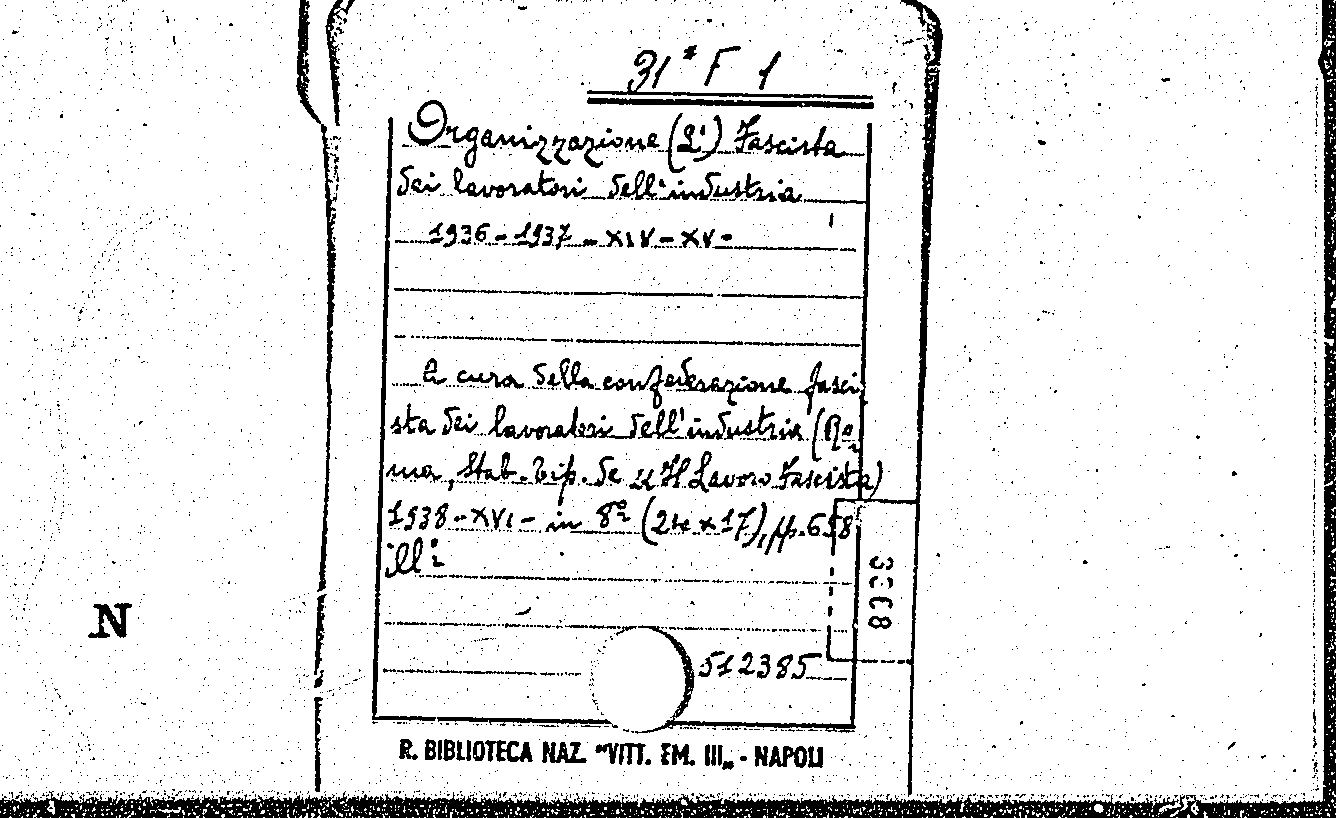 31ª F 1
Organizzazione (L') Fascista
dei lavoratori dell'industria
1936-1937 - XIV-XV-
A cura della confederazione fasci
sta dei lavoratori dell'industria (Ro
ma, Stab. Tip. de "Il Lavoro Fascista)
1938-XVI- in 8º (24 x 17), pp. 658
ill:
N
512385
R. BIBLIOTECA NAZ. "VITT. EM. III„ - NAPOLI